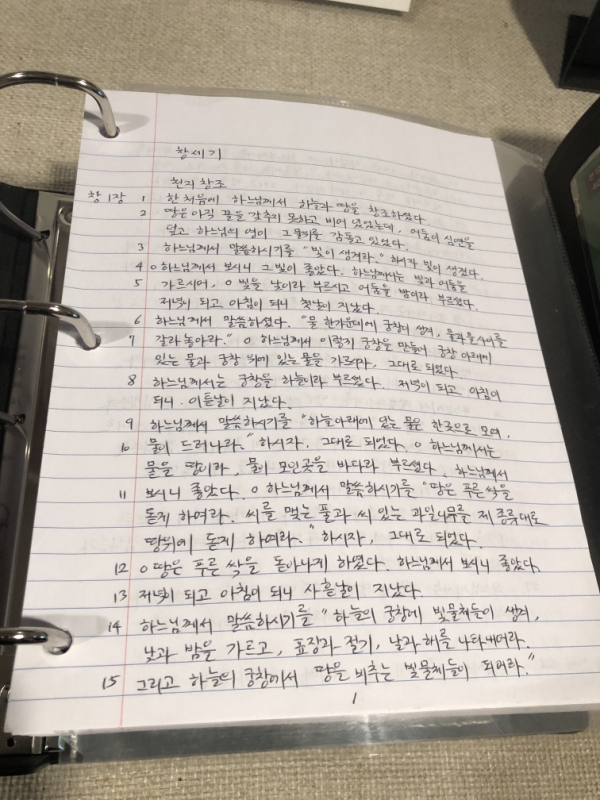 창세기
천지 창조
창 1장 1 한 처음에 하느님께서 하늘과 땅을 창조하셨다.
2 땅은 아직 꼴을 갖추지 못하고 비어 있었는데, 어둠이 심연을
덮고 하느님의 영이 그 물위를 감돌고 있었다.
3 하느님께서 말씀하시기를 "빛이 생겨라." 하시자 빛이 생겼다.
4 o 하느님께서 보시니 그 빛이 좋았다. 하느님께서는 빛과 어둠을
5 가르시어, o 빛을 낮이라 부르시고 어둠을 밤이라 부르셨다.
저녁이 되고 아침이 되니 첫날이 지났다.
6 하느님께서 말씀하셨다. "물 한가운데에 궁창이 생겨, 물과 물 사이를
7 갈라 놓아라." o 하느님께서 이렇게 궁창을 만들어 궁창 아래에
있는 물과 궁창 위에 있는 물을 가르시자, 그대로 되었다.
8 하느님께서는 궁창을 하늘이라 부르셨다. 저녁이 되고 아침이
되니 이튿날이 지났다.
9 하느님께서 말씀하시기를 "하늘아래에 있는 물은 한곳으로 모여,
10 뭍이 드러나라." 하시자, 그대로 되었다. o 하느님께서는
뭍을 땅이라, 물이 모인곳을 바다라 부르셨다. 하느님께서
11 보시니 좋았다. o 하느님께서 말씀하시기를 "땅은 푸른 싹을
돋게 하여라. 씨를 맺는 풀과 씨 있는 과일나무를 제 종류대로
땅위에 돋게 하여라." 하시자, 그대로 되었다.
12 o 땅은 푸른 싹을 돋아나게 하였다. 하느님께서 보시니 좋았다.
13 저녁이 되고 아침이 되니 사흗날이 지났다.
14 하느님께서 말씀하시기를 "하늘의 궁창에 빛물체들이 생겨,
낮과 밤을 가르고, 표징과 절기, 날과 해를 나타내어라.
15 그리고 하늘의 궁창에서 땅을 비추는 빛물체들이 되어라."
1